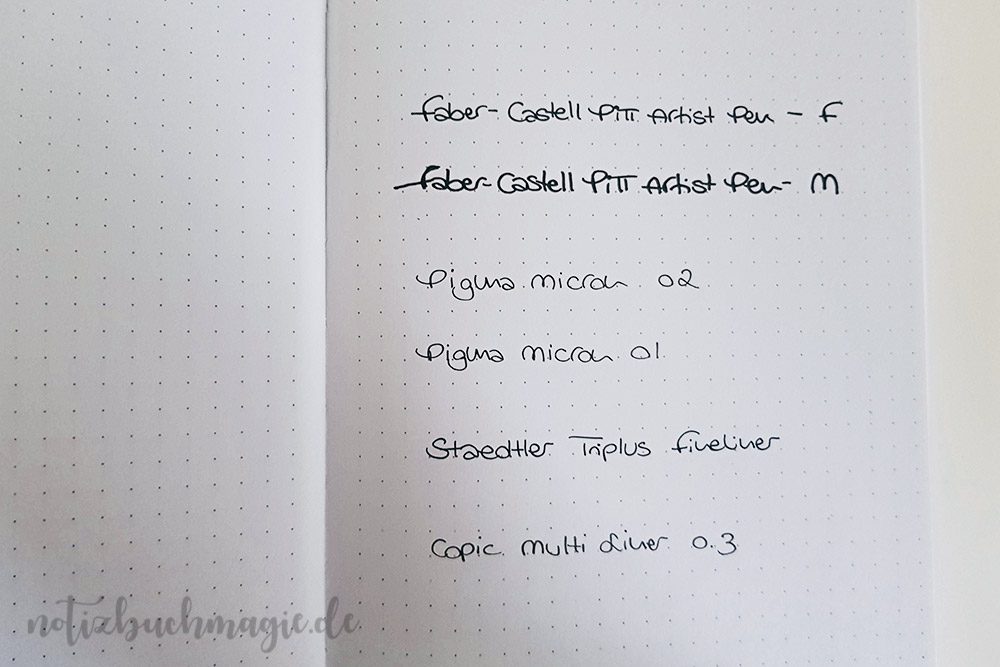 Faber-Castell PITT Artist Pen - F
Faber-Castell PITT Artist Pen - M
Pigma micron 02
Pigma micron 01
Staedtler Triplus fineliner
Copic multi liner 0.3
notizbuchmagie.de